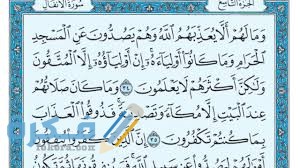 الجزء التاسع سورة الأنفال
وَمَا لَهُمْ أَلَّا يُعَذِّبَهُمُ ٱللَّهُ وَهُمْ يَصُدُّونَ عَنِ ٱلْمَسْجِدِ
ٱلْحَرَامِ وَمَا كَانُوٓا۟ أَوْلِيَآءَهُۥٓ إِنْ أَوْلِيَآؤُهُۥٓ إِلَّا ٱلْمُتَّقُونَ
وَلَٰكِنَّ أَكْثَرَهُمْ لَا يَعْلَمُونَ ٣٤ وَمَا كَانَ صَلَاتُهُمْ
عِندَ ٱلْبَيْتِ إِلَّا مُكَآءً وَتَصْدِيَةً فَذُوقُوا۟ ٱلْعَذَابَ
بِمَا كُنتُمْ تَكْفُرُونَ ٣٥ إِنَّ ٱلَّذِينَ كَفَرُوا۟ يُنفِقُونَ